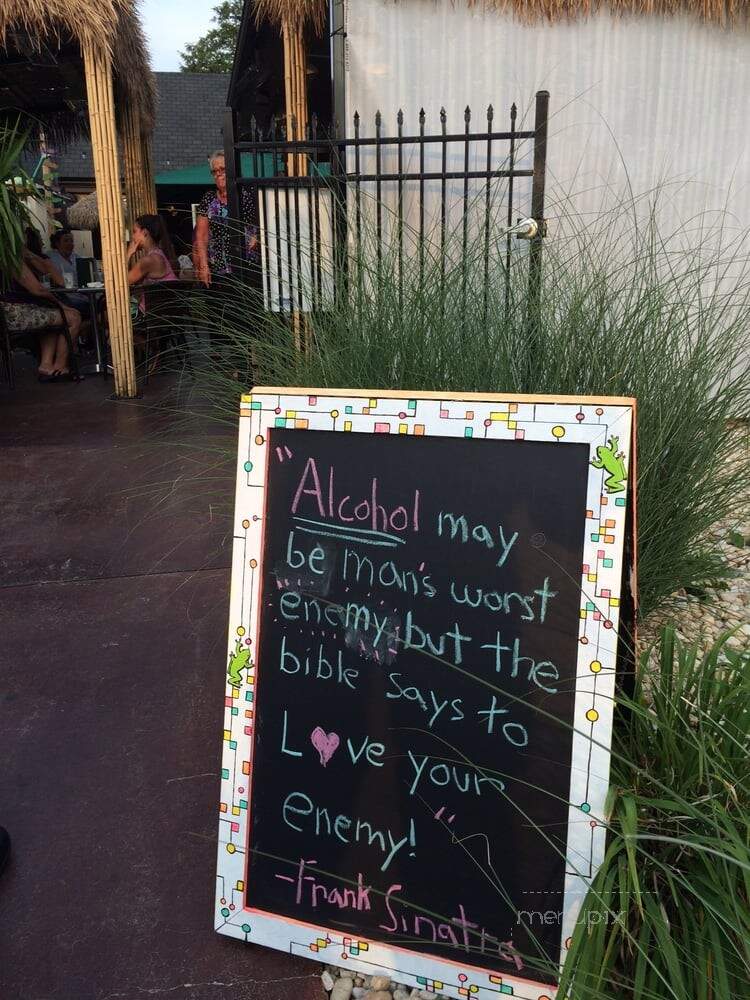 "Alcohol may
be man's worst
enemy but the
bible says to
Love your
enemy!"
-Frank Sinatra
menupix